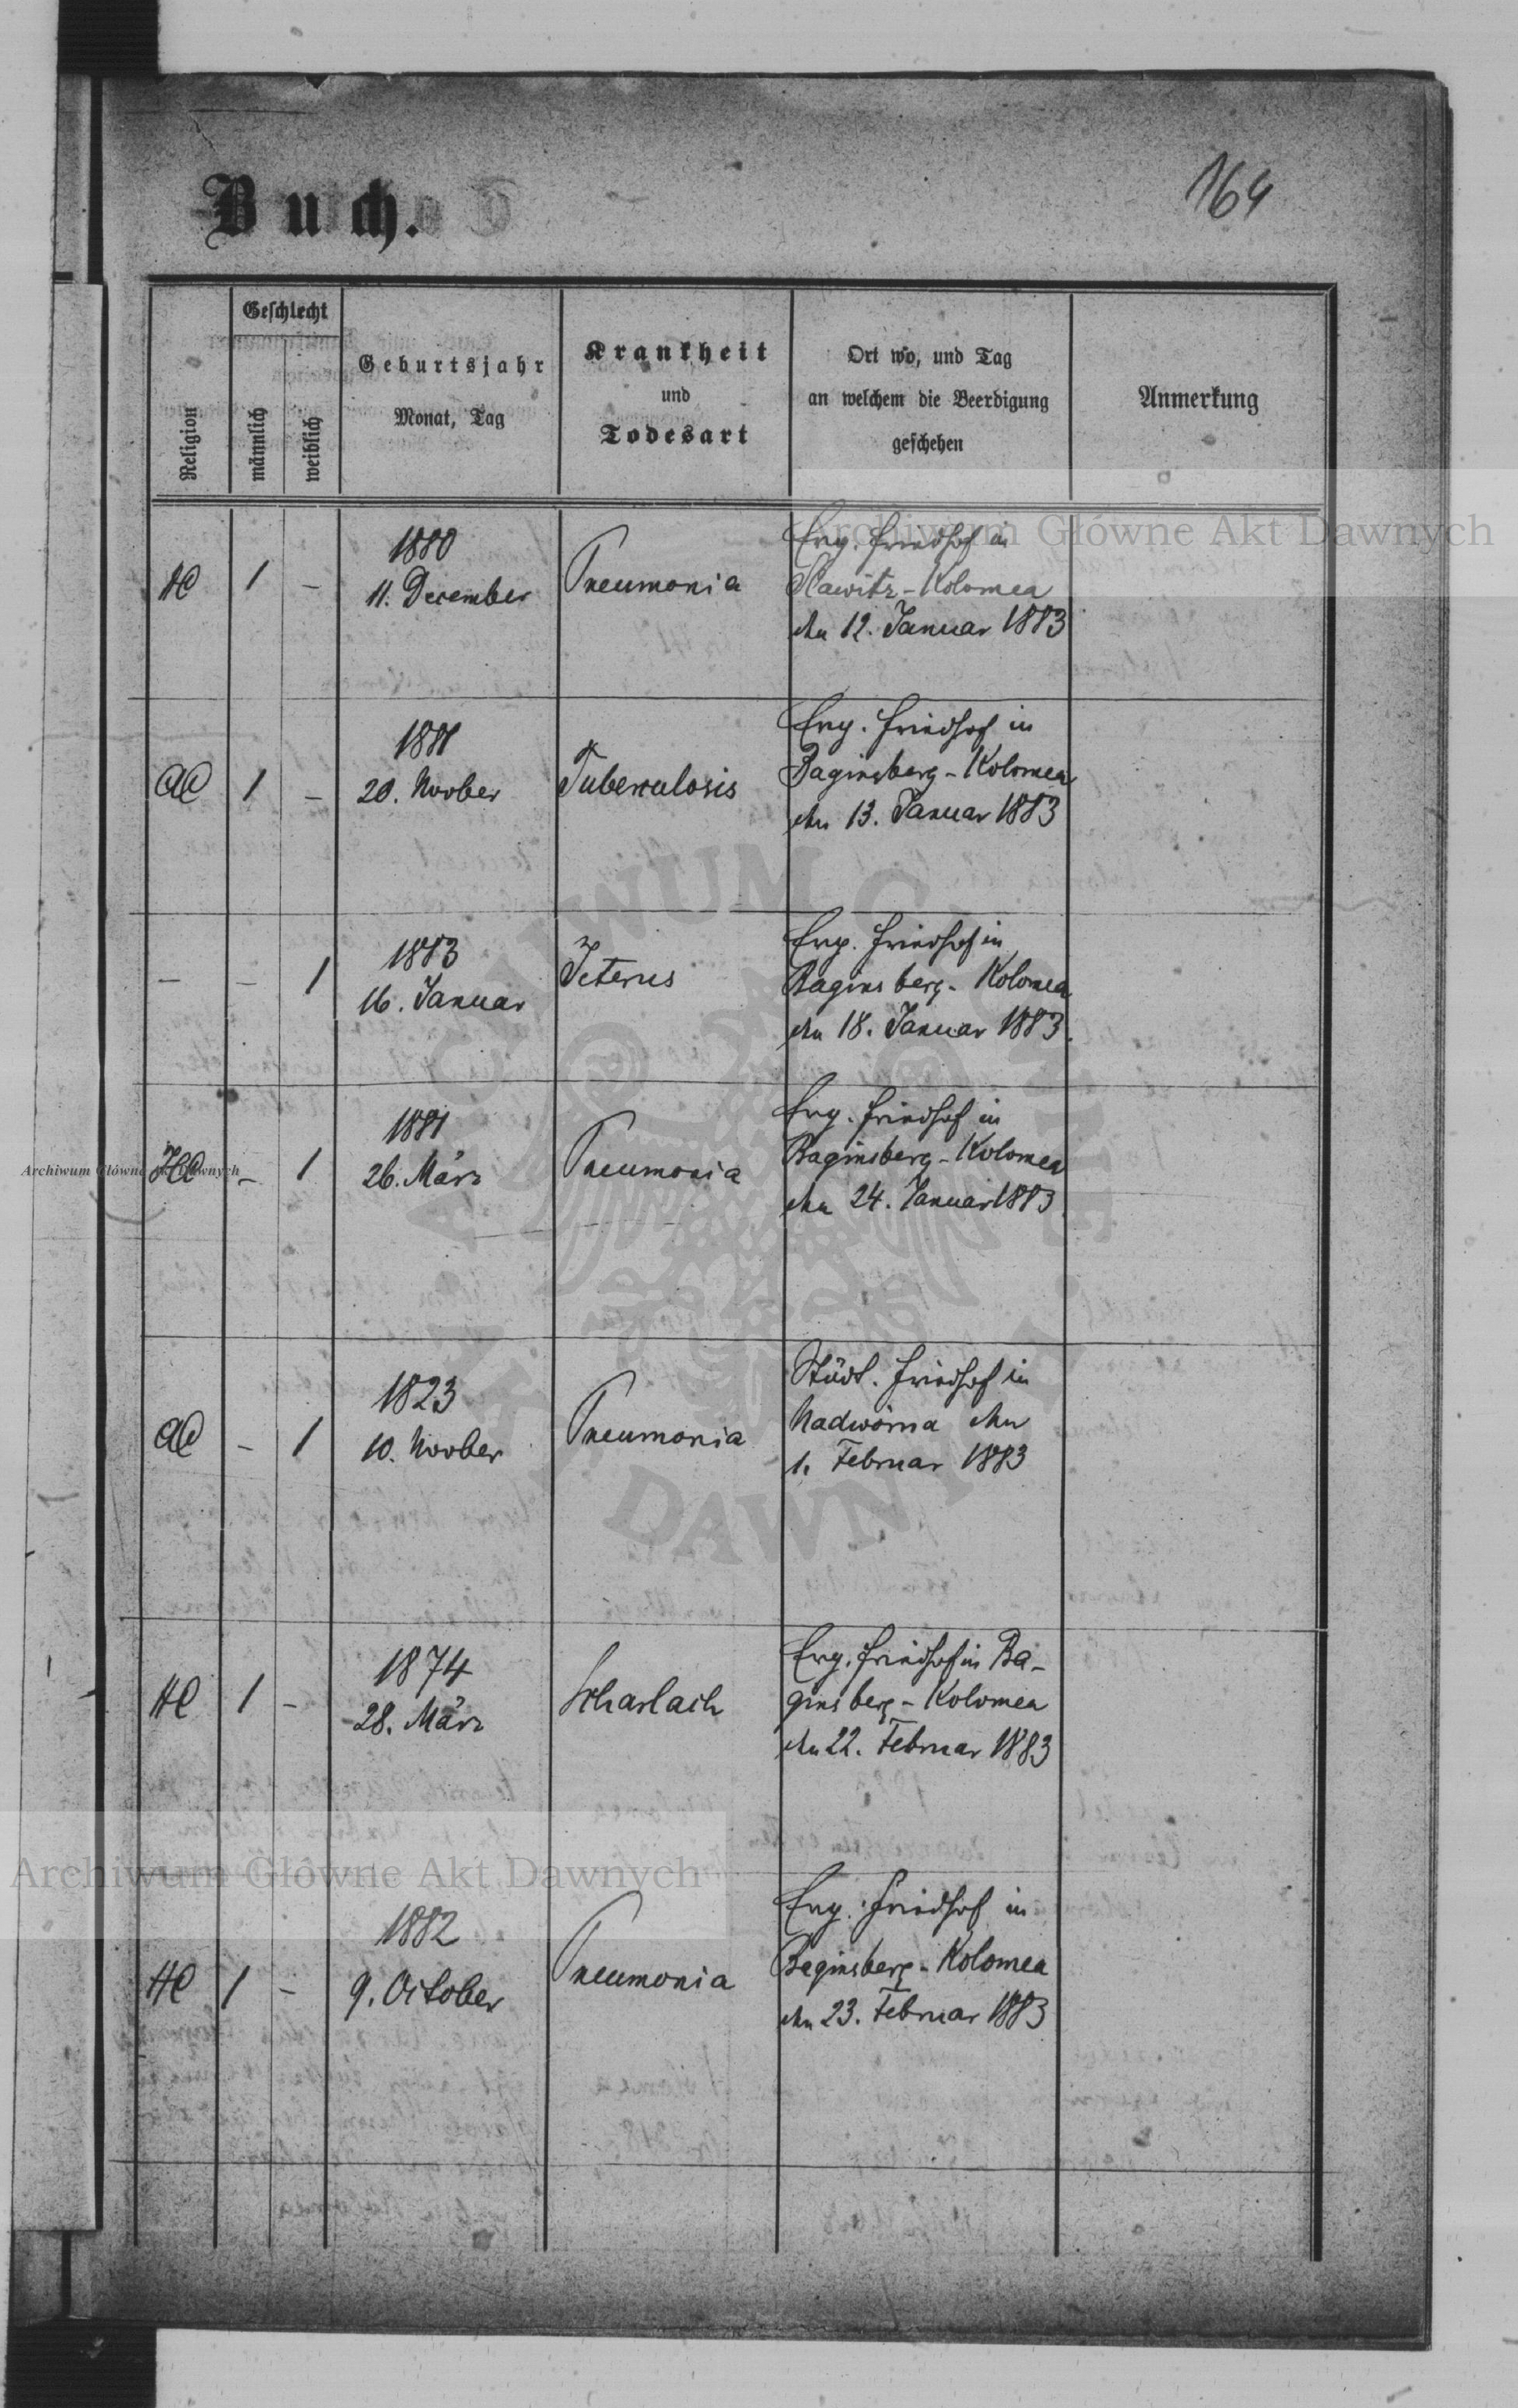 164
Buch.
Religion
Geschlecht
männlich
weiblich
Geburtsjahr
Monat, Tag
Krankheit
und
Todesart
Ort wo, und Tag
an welchem die Beerdigung
geschehen
Anmerkung
HC 1 –
1880
11. December
Pneumonia
Evg. Friedhof in
Slawitz-Kolomea
den 12. Januar 1883
AC 1 –
1881
20. Novber
Tuberculosis
Evg. Friedhof in
Baginsberg-Kolomea
den 13. Januar 1883
– – 1
1883
16. Januar
Icterus
Evg. Friedhof in
Baginsberg-Kolomea
den 18. Januar 1883.
HC – 1
1881
26. März
Pneumonia
Evg. Friedhof in
Baginsberg-Kolomea
den 24. Januar 1883.
AC – 1
1823
10. Novber
Pneumonia
Städt. Friedhof in
Nadwórna den
1. Februar 1883
HC 1 –
1874
28. März
Scharlach
Evg. Friedhof in Ba-
ginsberg-Kolomea
den 22. Februar 1883
HC 1 –
1882
9. October
Pneumonia
Evg. Friedhof in
Baginsberg-Kolomea
den 23. Februar 1883
Archiwum Główne Akt Dawnych
Archiwum Główne Akt Dawnych
Archiwum Główne Akt Dawnych
ARCHIWUM GŁÓWNE AKT DAWNYCH